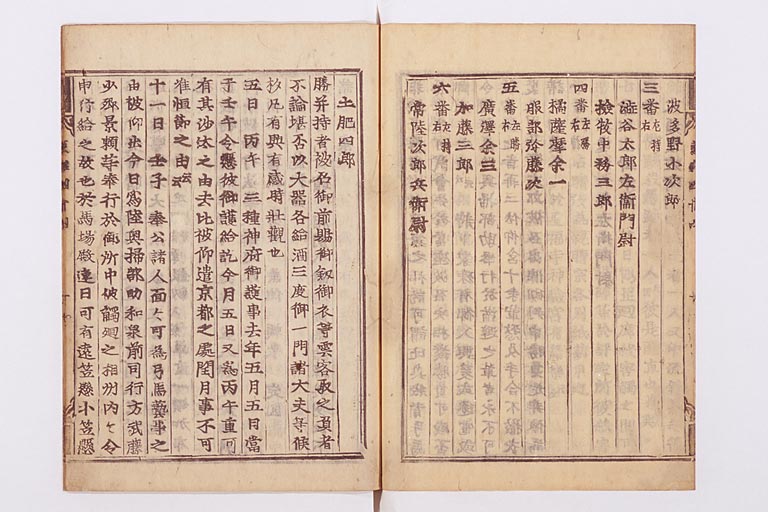 波多野小次郎
三番 左持 右
澁谷太郎左衛門尉
牧中務三郎
四番 左勝 右
橘薩摩余一
服部弥藤次
五番 左勝 右
廣澤余三
加藤三郎
六番 左 右
常陸次郎兵衛尉
土肥四郎
勝并持者被召御前賜御釼御衣等雲客取之負者
不論堪否以大器各給酒三度御一門諸大夫等候
杓凡有興有感時壯觀也
五日 丙午 三種神府御護事去年五月五日當
于壬午令懸彼御護給訖今月五日又爲丙午重可
有其沙汰之由去比被仰遣京都之處閏月事不可
准恒節之由云云
十一日 壬子 奉公諸人面々可爲弓馬藝事之
由被仰出今日爲陸奥掃部助和泉前司行方武藤
少卿景頼等奉行於御所中被觸廻之相州内々令
申行給之故也於馬場殿連日可有遠笠懸小笠懸